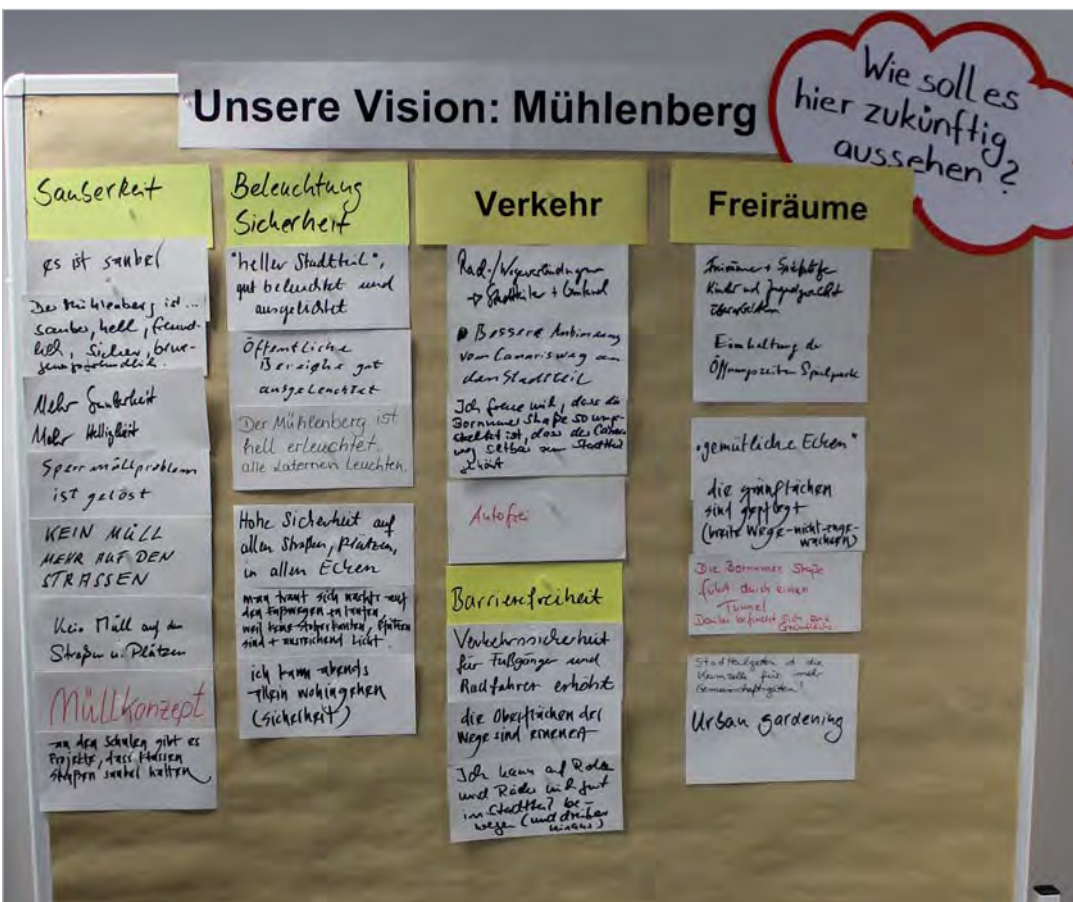 Unsere Vision: Mühlenberg
Wie soll es
hier zukünftig
aussehen?
Sauberkeit
es ist sauber
Der Mühlenberg ist...
sauber, hell, freund-
lich, sicher,
Mehr Sauberkeit
Mehr Helligkeit
Sperrmüllproblem
ist gelöst
KEIN MÜLL
MEHR AUF DEN
STRASSEN
Kein Müll auf den
Straßen u. Plätzen
Müllkonzept
an den Schulen gibt es
Projekte, dass Klassen
Straßen sauber halten
Beleuchtung
Sicherheit
"heller Stadtteil",
gut beleuchtet und
ausgelichtet
Öffentliche
Bereiche gut
ausgeleuchtet
Der Mühlenberg ist
hell erleuchtet.
alle Laternen leuchten.
Hohe Sicherheit auf
allen Straßen, Plätzen,
in allen Ecken
man traut sich nachts auf
den Fußwegen zu laufen,
weil keine Stolperkanten, Pfützen
sind + ausreichend Licht.
ich kann abends
allein wohingehen
(Sicherheit)
Verkehr
Rad-/Wegeverbindungen
→ Stadtteile + Umland
Bessere Anbindung
vom Canarisweg an
den Stadtteil
Ich freue mich, dass die
Bornumer Straße so umge-
staltet ist, dass der Canaris-
weg selbst zum Stadtteil
gehört
Autofrei
Barrierefreiheit
Verkehrssicherheit
für Fußgänger und
Radfahrer erhöht
die Oberflächen der
Wege sind erneuert
Ich kann auf Rollen
und Räder mich gut
im Stadtteil be-
wegen (und drüber
hinaus)
Freiräume
Freiräume + Spielplätze
Kinder und Jugendgerecht
Einhaltung der
Öffnungszeiten Spielparks
"gemütliche Ecken"
die Grünflächen
sind gepflegt
(breite Wege - nicht zuge-
wachsen)
Die Bornumer Straße
führt durch einen
Tunnel
Darüber befindet sich eine
Grünfläche
Stadtteilgarten ist die
Keimzelle für mehr
Gemeinschaftsgärten!
Urban gardening